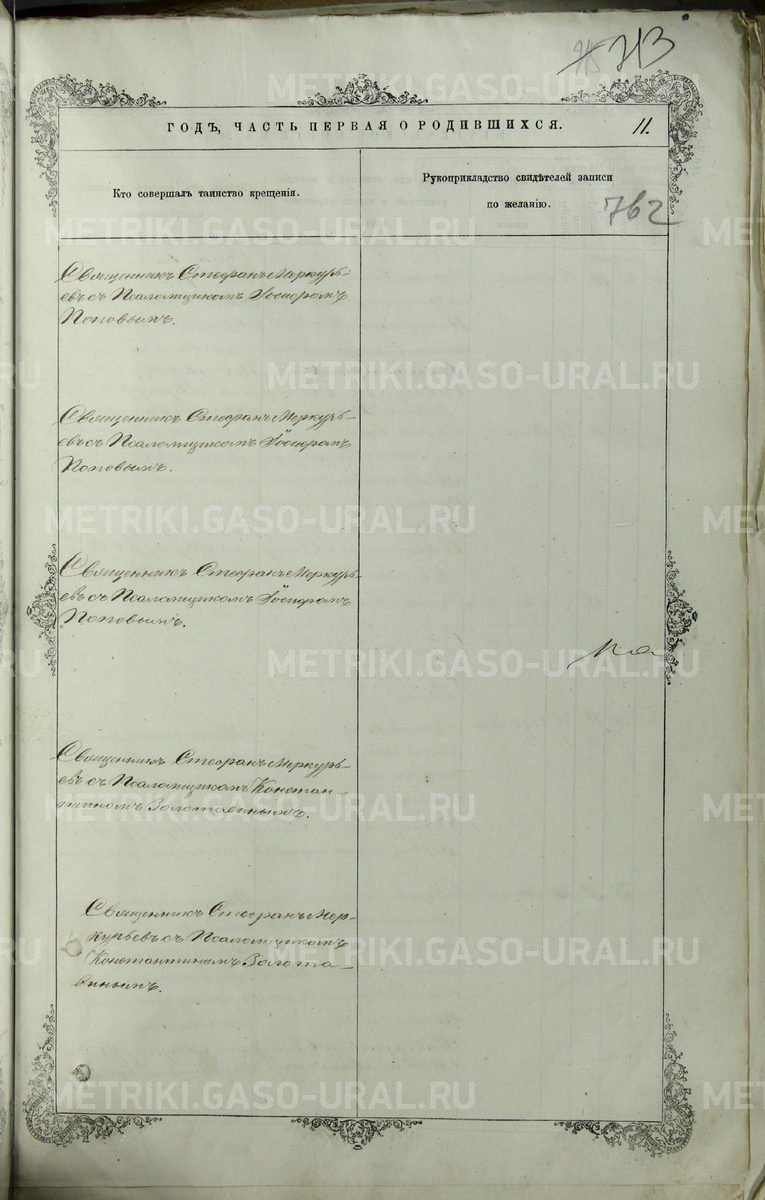 713
ГОДЪ, ЧАСТЬ ПЕРВАЯ О РОДИВШИХСЯ.
11.
Кто совершалъ таинство крещенія.
Рукоприкладство свидѣтелей записи
по желанію.
762
Священникъ Стефанъ Меркурь-
евъ съ Псаломщикомъ Ѳеодоромъ
Поповымъ.
Священникъ Стефанъ Меркурь-
евъ съ Псаломщикомъ Ѳеодоромъ
Поповымъ.
Священникъ Стефанъ Меркурь-
евъ съ Псаломщикомъ Ѳеодоромъ
Поповымъ.
Священникъ Стефанъ Меркурь-
евъ съ Псаломщикомъ Констан-
тиномъ Золотавинымъ.
Священникъ Стефанъ Мер-
курьевъ съ Псаломщикомъ
Константиномъ Золота-
винымъ.
METRIKI.GASO-URAL.RU